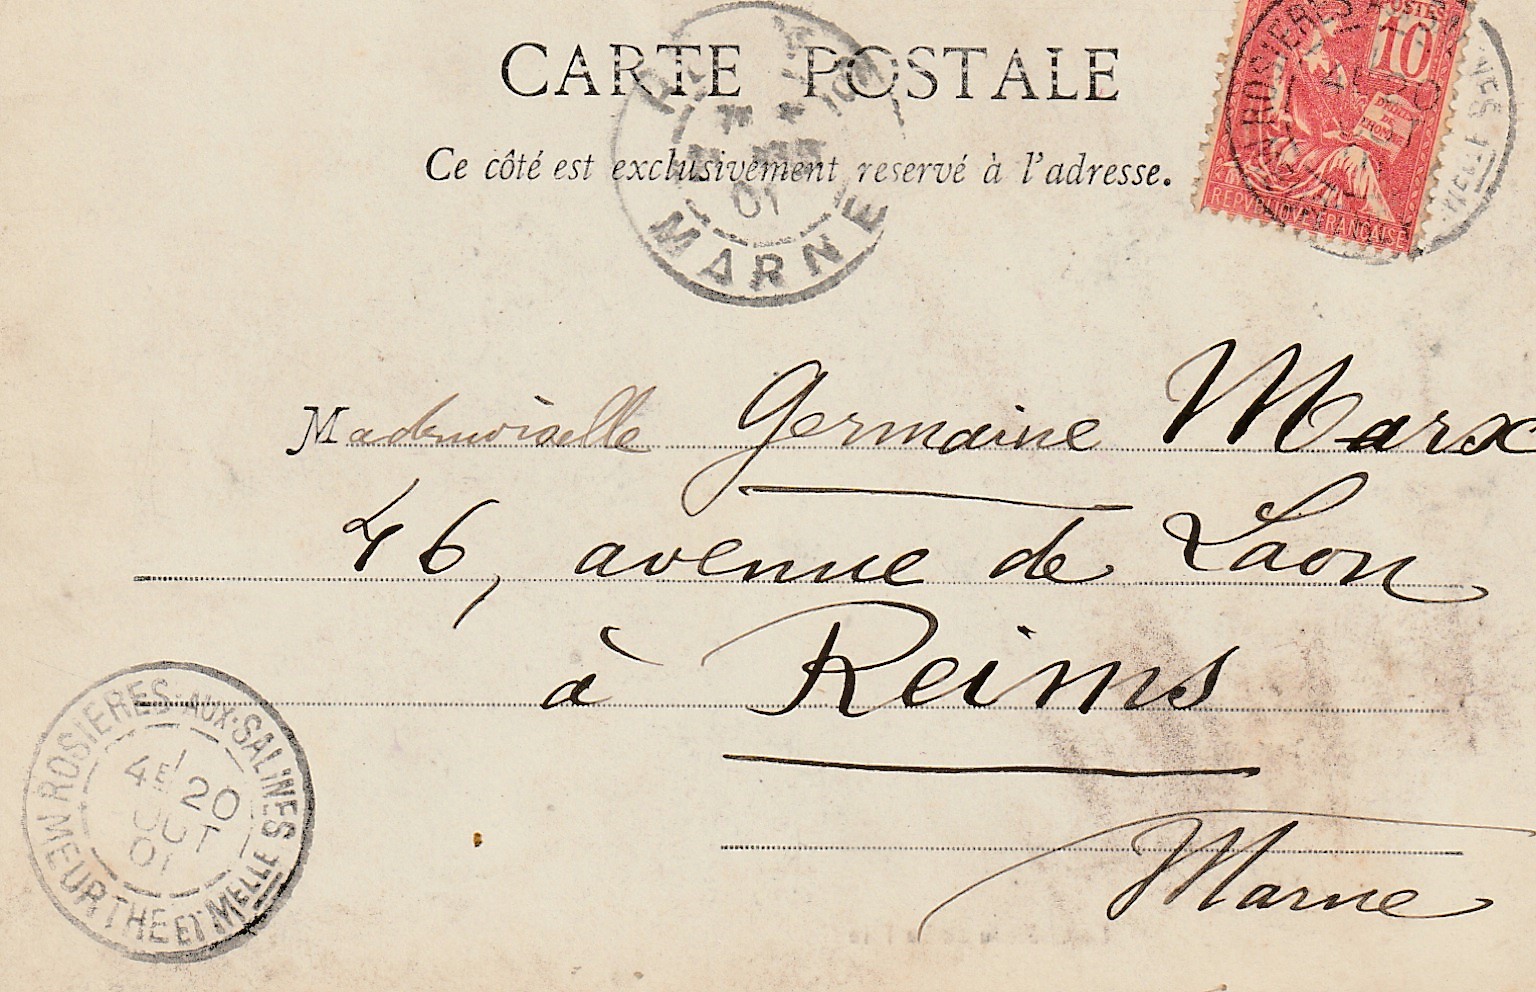 CARTE POSTALE
Ce côté est exclusivement reservé à l'adresse.
POSTES
10
DROITS
DE
L'HOMME
REPVBLIQVE FRANÇAISE
01
MARNE
Mademoiselle Germaine Marx
46, avenue de Laon
à Reims
Marne
ROSIERES-AUX-SALINES
4E
20
OUT
01
MEURTHE ET MELLE